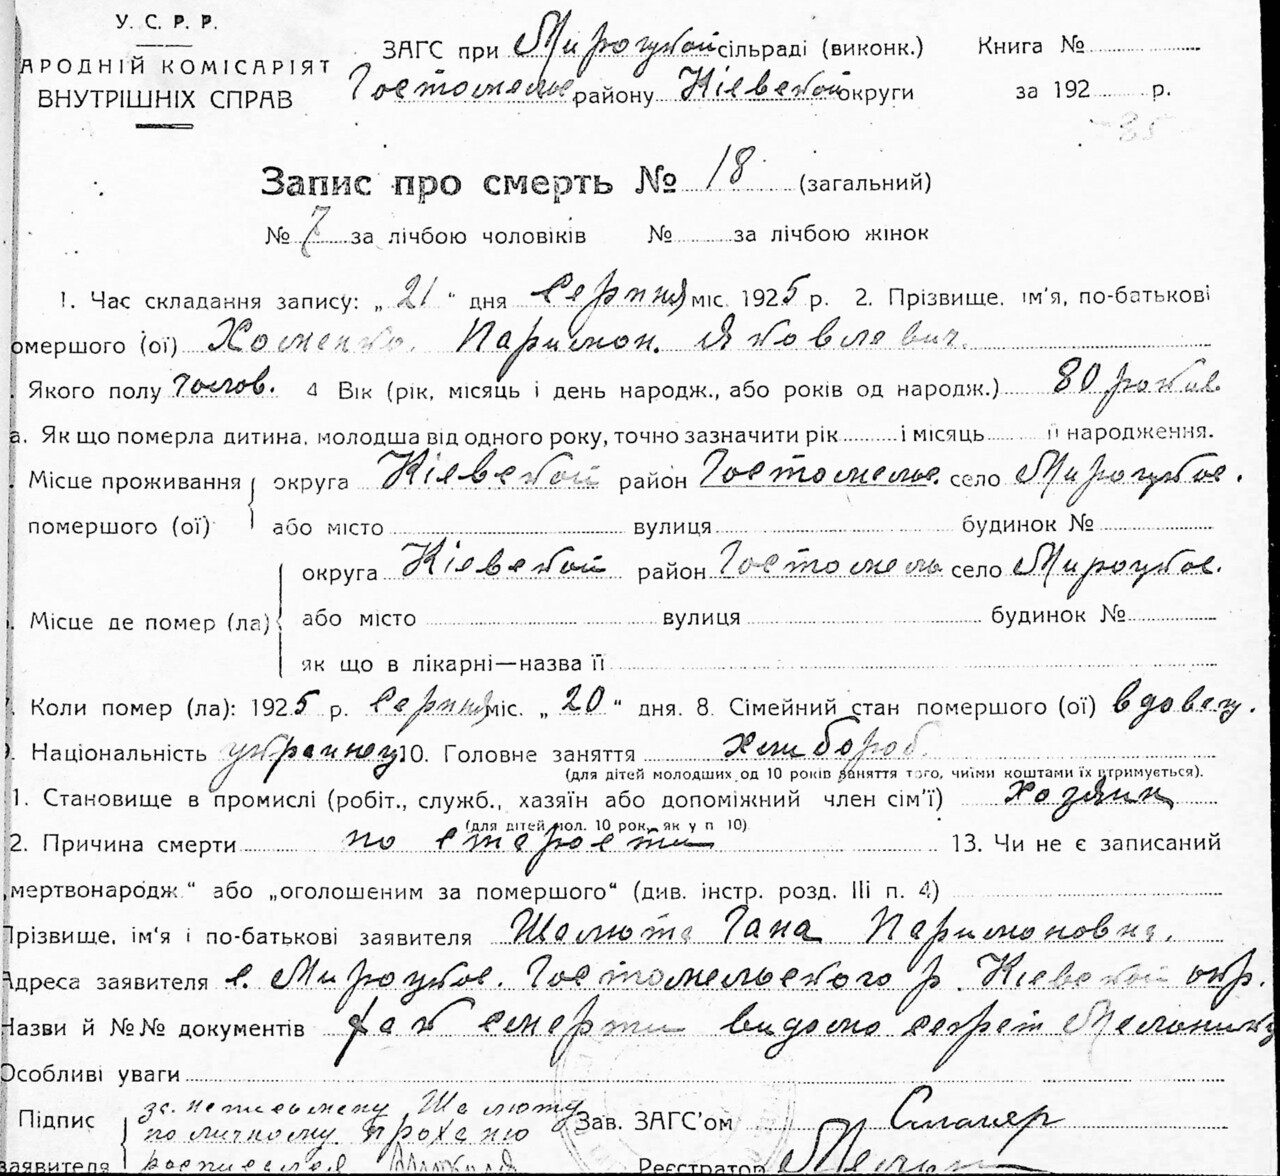 У. С. Р. Р.
АРОДНІЙ КОМІСАРІЯТ
ВНУТРІШНІХ СПРАВ
ЗАГС при Мироцкой сільраді (виконк.) Книга №
Гостомельс району Кіевской округи за 192 р.
Запис про смерть № 18 (загальний)
№ 7 за лічбою чоловіків № за лічбою жінок
1. Час складання запису: „ 21 “ дня Серпня міс. 1925 р. 2. Прізвище, ім'я, по-батькові
омершого (ої) Хоменко. Паримон. Яковлевич.
Якого полу чолов. 4 Вік (рік, місяць і день народж., або років од народж.) 80 роков
а. Як що померла дитина, молодша від одного року, точно зазначити рік і місяць її народження.
Місце проживання округа Кіевской район Гостомельс. село Мироцкое.
помершого (ої) або місто вулиця будинок №
округа Кіевской район Гостомель село Мироцкое.
Місце де помер (ла) або місто вулиця будинок №
як що в лікарні—назва її
Коли помер (ла): 1925 р. Серпня міс. „ 20 “ дня. 8. Сімейний стан помершого (ої) вдовец.
Національність украинец 10. Головне заняття хлибороб.
(для дітей молодших од 10 років заняття того, чиїми коштами їх втримується).
1. Становище в промислі (робіт., служб., хазяїн або допоміжний член сім'ї) хозяин
(для дітей мол. 10 рок. як у п 10)
2. Причина смерти по старости 13. Чи не є записаний
„мертвонародж.“ або „оголошеним за помершого“ (див. інстр. розд. III п. 4)
Прізвище, ім'я і по-батькові заявителя Шалюта Гана Паримоновна.
Адреса заявителя с. Мироцкое. Гостомельского р. Кіевской окр.
Назви й №№ документів факт смерти видомо секрет Мельнику
Особливі уваги
Підпис за неписьмену Шалюту Зав. ЗАГС'ом
по личному проханю
заявителя росписался Реєстратор